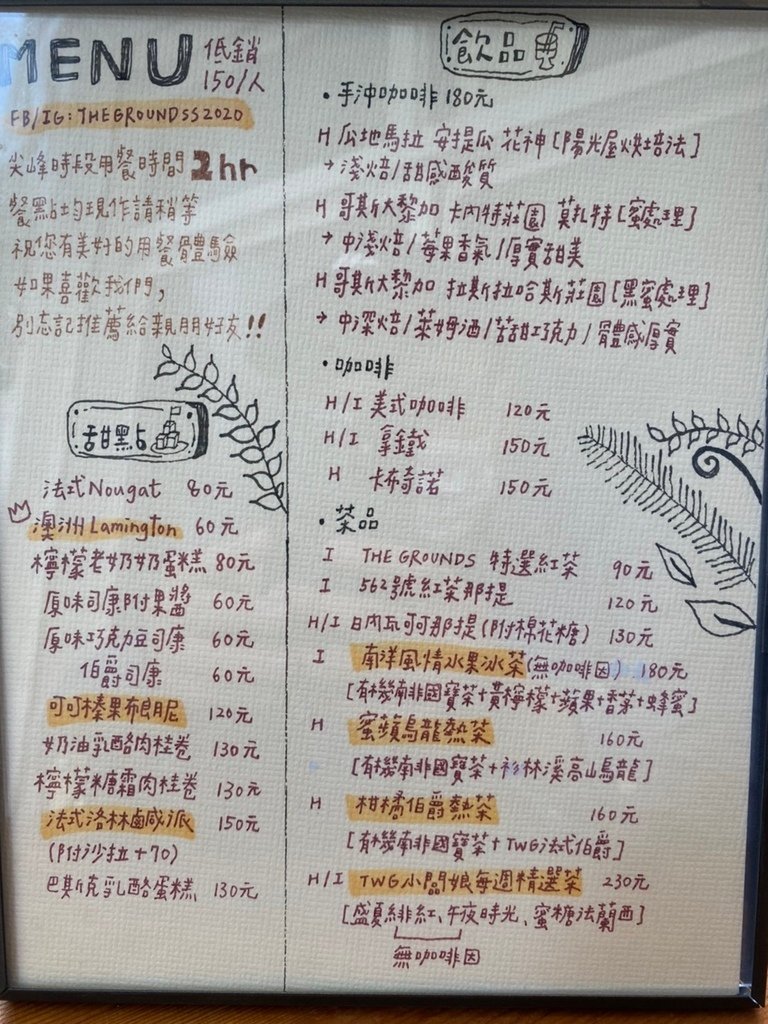 MENU 低銷
150/人
FB/IG: THEGROUNDSS2020
尖峰時段用餐時間 2hr
餐點均現作請稍等
祝您有美好的用餐體驗
如果喜歡我們,
別忘記推薦給親朋好友!!
甜點
法式Nougat 80元
澳洲Lamington 60元
檸檬老奶奶蛋糕 80元
原味司康附果醬 60元
原味巧克力豆司康 60元
伯爵司康 60元
可可榛果布朗尼 120元
奶油乳酪肉桂卷 130元
檸檬糖霜肉桂卷 130元
法式洛林鹹派 150元
(附沙拉+70)
巴斯克乳酪蛋糕 130元
飲品
·手沖咖啡 180元
H 瓜地馬拉 安提瓜 花神 [陽光屋烘培法]
→淺焙/甜感酒質
H 哥斯大黎加 卡內特莊園 莫札特 [蜜處理]
→中淺焙/莓果香氣/厚實甜美
H 哥斯大黎加 拉斯拉哈斯莊園 [黑蜜處理]
→中深焙/萊姆酒/苦甜巧克力/體感厚實
·咖啡
H/I 美式咖啡 120元
H/I 拿鐵 150元
H 卡布奇諾 150元
·茶品
I THE GROUNDS 特選紅茶 90元
I 562號紅茶那提 120元
H/I 日內瓦可可那提(附棉花糖) 130元
I 南洋風情水果冰茶(無咖啡因) 180元
[有機南非國寶茶+黃檸檬+蘋果+香茅+蜂蜜]
H 蜜蘋烏龍熱茶 160元
[有機南非國寶茶+杉林溪高山烏龍]
H 柑橘伯爵熱茶 160元
[有機南非國寶茶+TWG法式伯爵]
H/I TWG小闆娘每週精選茶 230元
[盛夏緋紅、午夜時光、蜜糖法蘭西]
無咖啡因